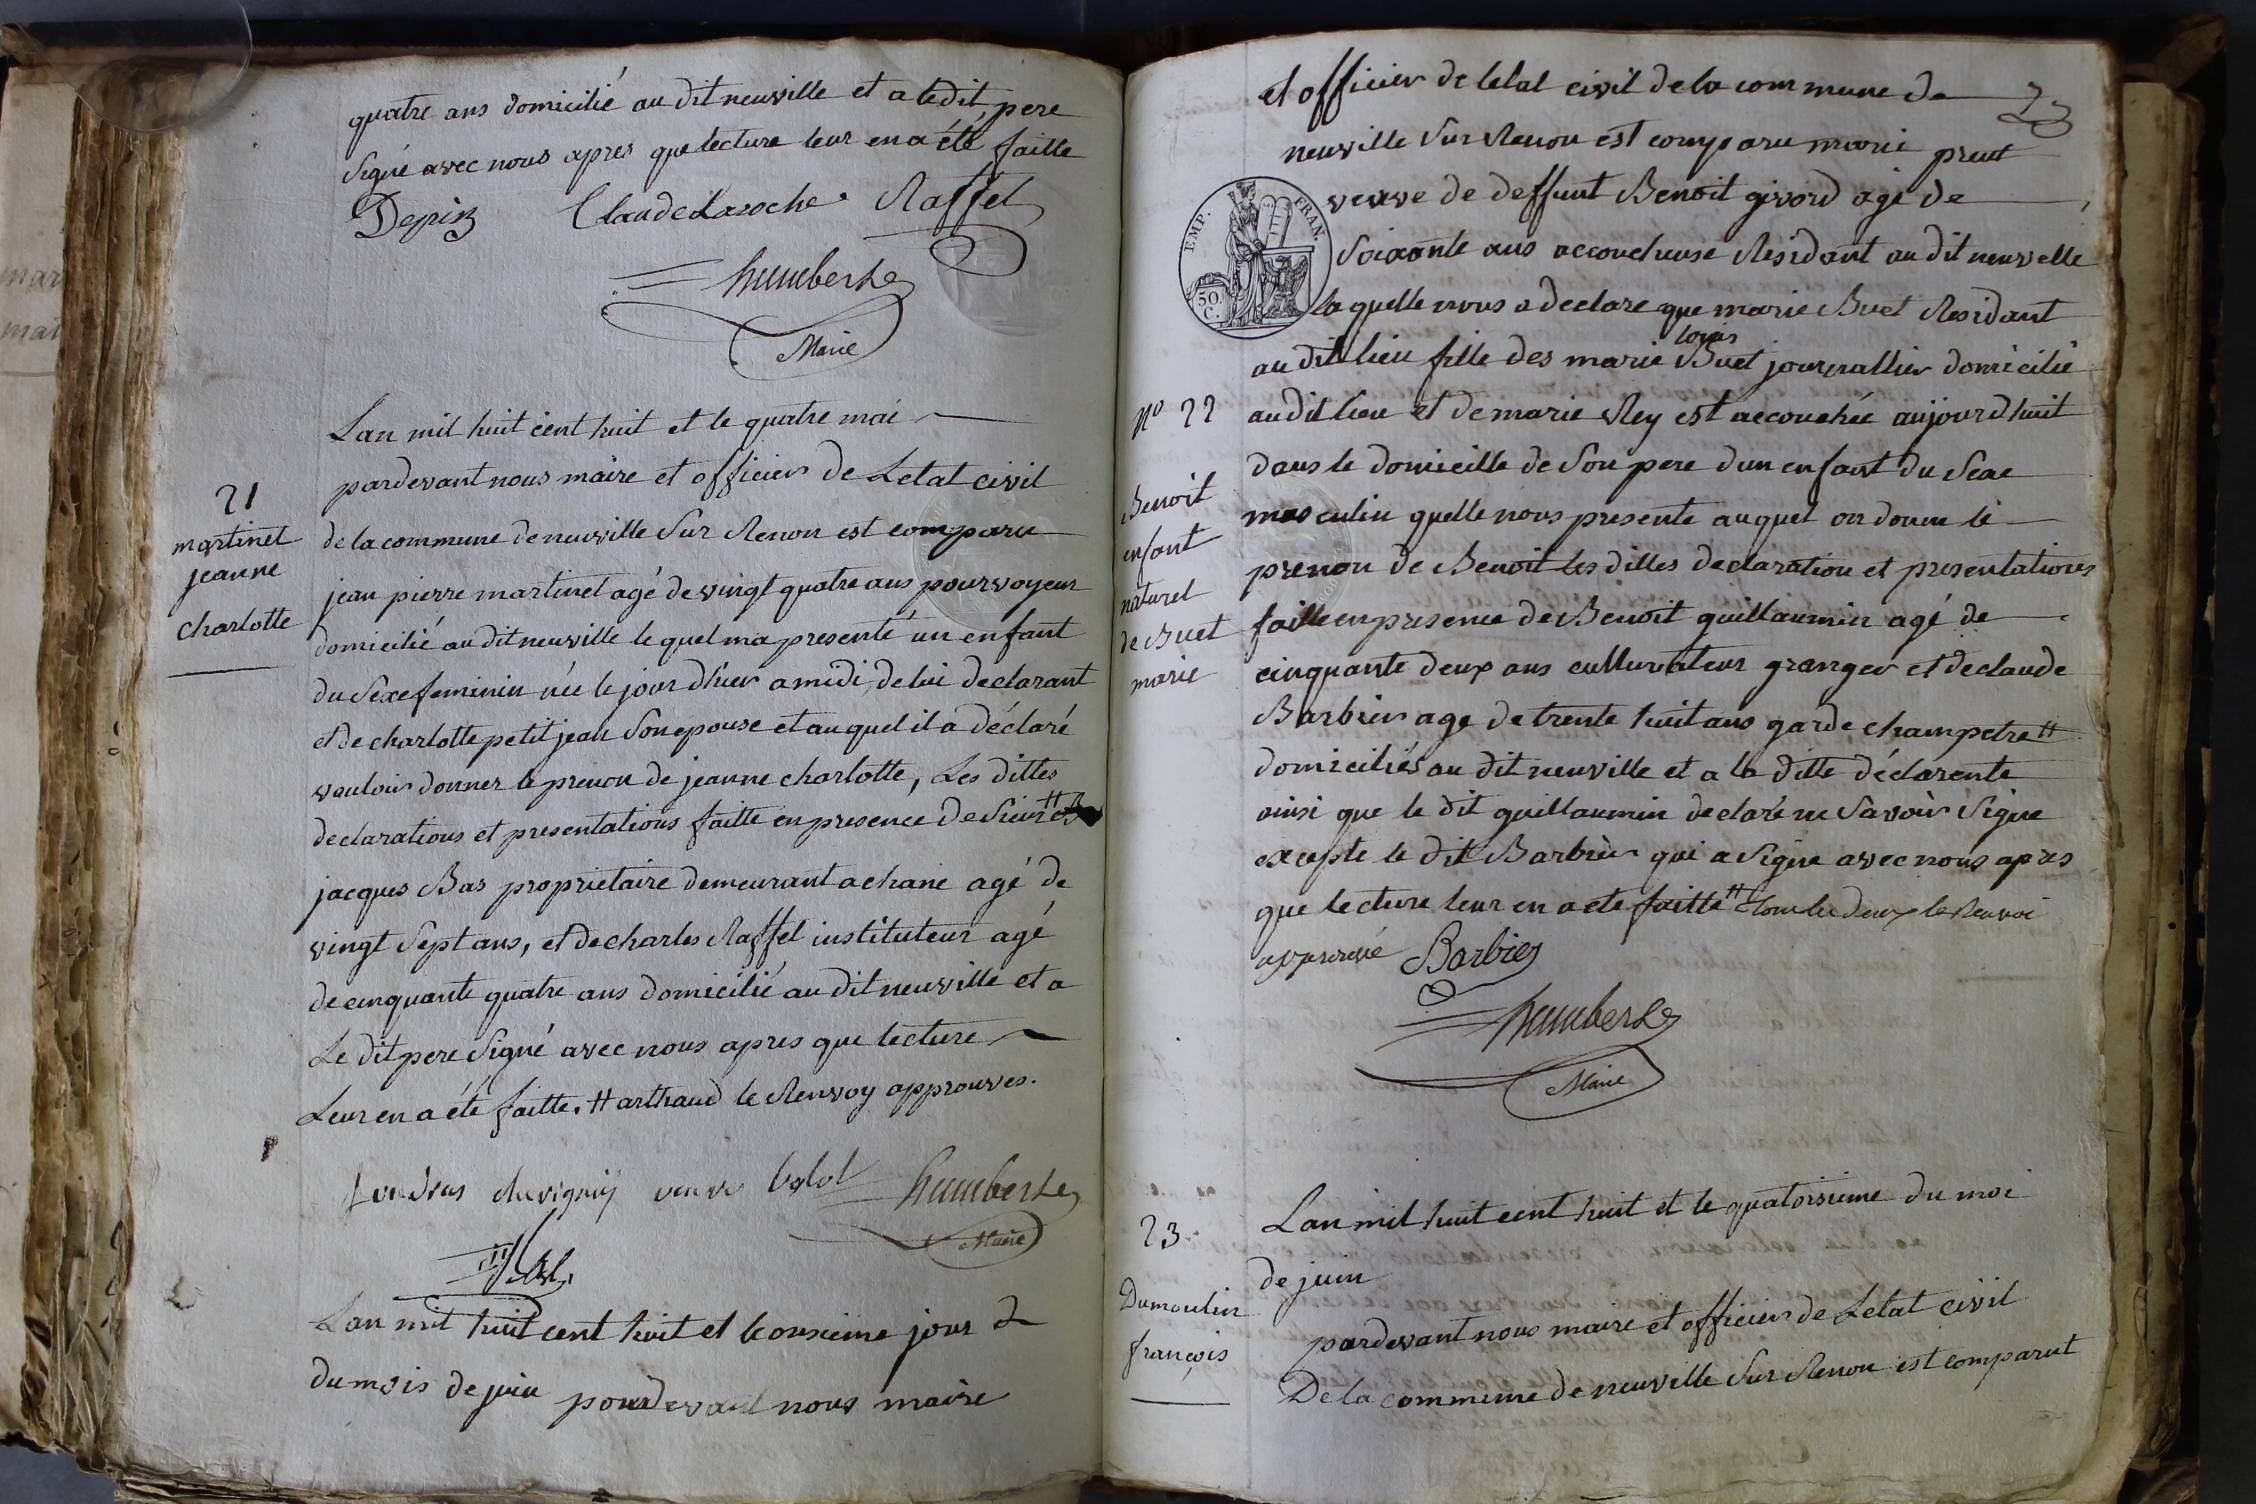 quatre ans domicilié au dit neuville et a ledit pere
signé avec nous apres que lecture leur en a été faitte
Depiz Claude Laroche Raffet
humbert
Maire
Lan mil huit cent huit et le quatre mai
pardevant nous maire et officier de Letat civil
21
martinet
jeanne
charlotte
de la commune de neuville sur Renon est comparu
jean pierre martinet agé de vingt quatre ans pourvoyeur
domicilié au dit neuville le quel ma presenté un enfant
du Sexe feminin née le jour d'hier a midi, de lui declarant
et de charlotte petit jean Son epouse et au quel il a déclaré
vouloir donner le prenon de jeanne charlotte, Les dittes
declarations et presentations faitte en presence de Sieur
jacques Bas proprietaire demeurant a chane agé de
vingt Sept ans, et de charles Raffet instituteur agé
de cinquante quatre ans domicilié au dit neuville et a
Le dit pere Signé avec nous apres que lecture
Leur en a été faitte. # arthaud le Renvoy approuves.
humbert
Maire
Lan mil huit cent huit et le onzieme jour
du mois de juin pardevant nous maire
et officier de letat civil de la commune de
23
neuville Sur Renon est comparu marie
veuve de deffunt Benoit givord agé de
EMP. FRAN.
50 C.
Soixante ans accoucheuse Residant au dit neuvelle
la quelle nous a declare que marie Buet Residant
louis
au dit lieu fille des marie Buet journallier domicilié
No 22
au dit lieu et de marie Rey est accouchée aujourdhuit
dans le domicille de Son pere dun enfant du Sexe
Benoit
enfant
naturel
de Buet
marie
masculin quelle nous presente auquel on donne le
prenon de Benoit les dittes declaration et presentations
faitte en presence de Benoit guillaumin agé de
cinquante deux ans cultuvateur granger et de claude
Barbier age de trente huit ans garde champetre #
domiciliés au dit neuville et a la ditte déclarente
ainsi que le dit guillaumin declaré ne Savoir Signe
excepte le dit Barbier qui a Signe avec nous apres
que lecture leur en a ete faitte # tous les deux le Renvoi
approuvé Barbier
humbert
Maire
23
Dumoulin
françois
Lan mil huit cent huit et le quatorsieme du moi
de juin
pardevant nous maire et officier de Letat civil
De la commune de neuville Sur Renon est comparut